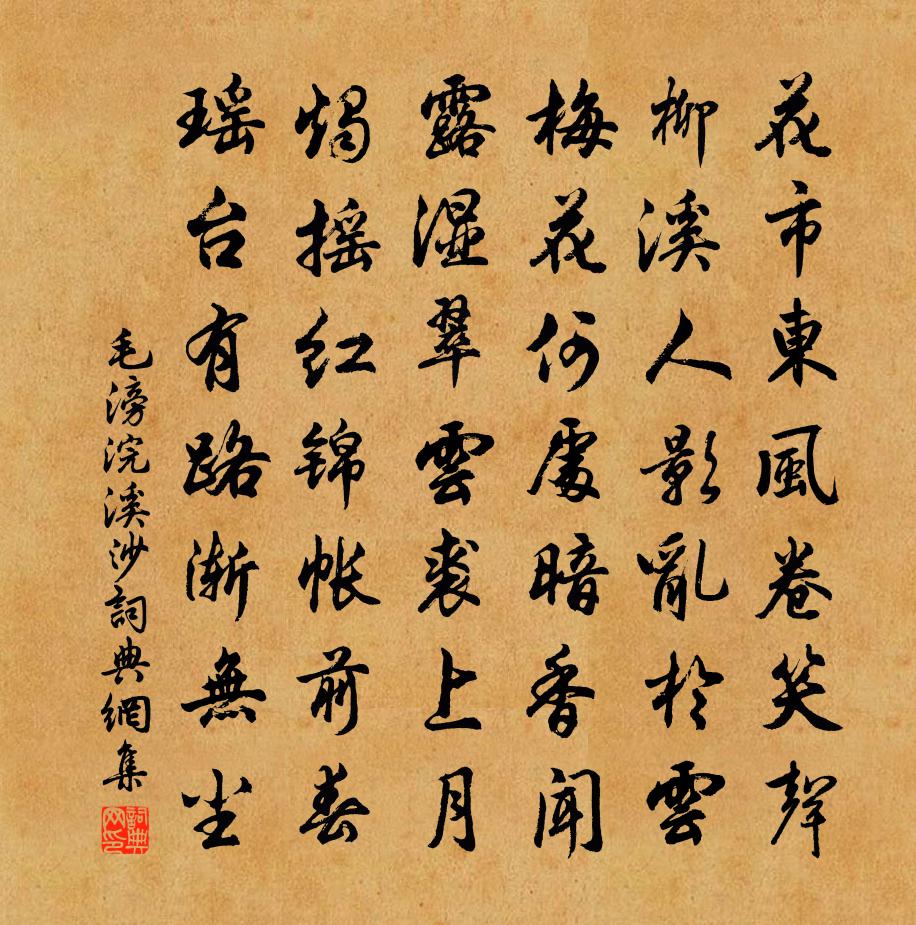 花市東風卷笑聲
柳溪人影亂於雲
梅花何處暗香聞
露濕翠雲裘上月
燭摇红锦帐前春
瑶台有路渐無尘
毛滂浣溪沙詞典網集
詞典网印